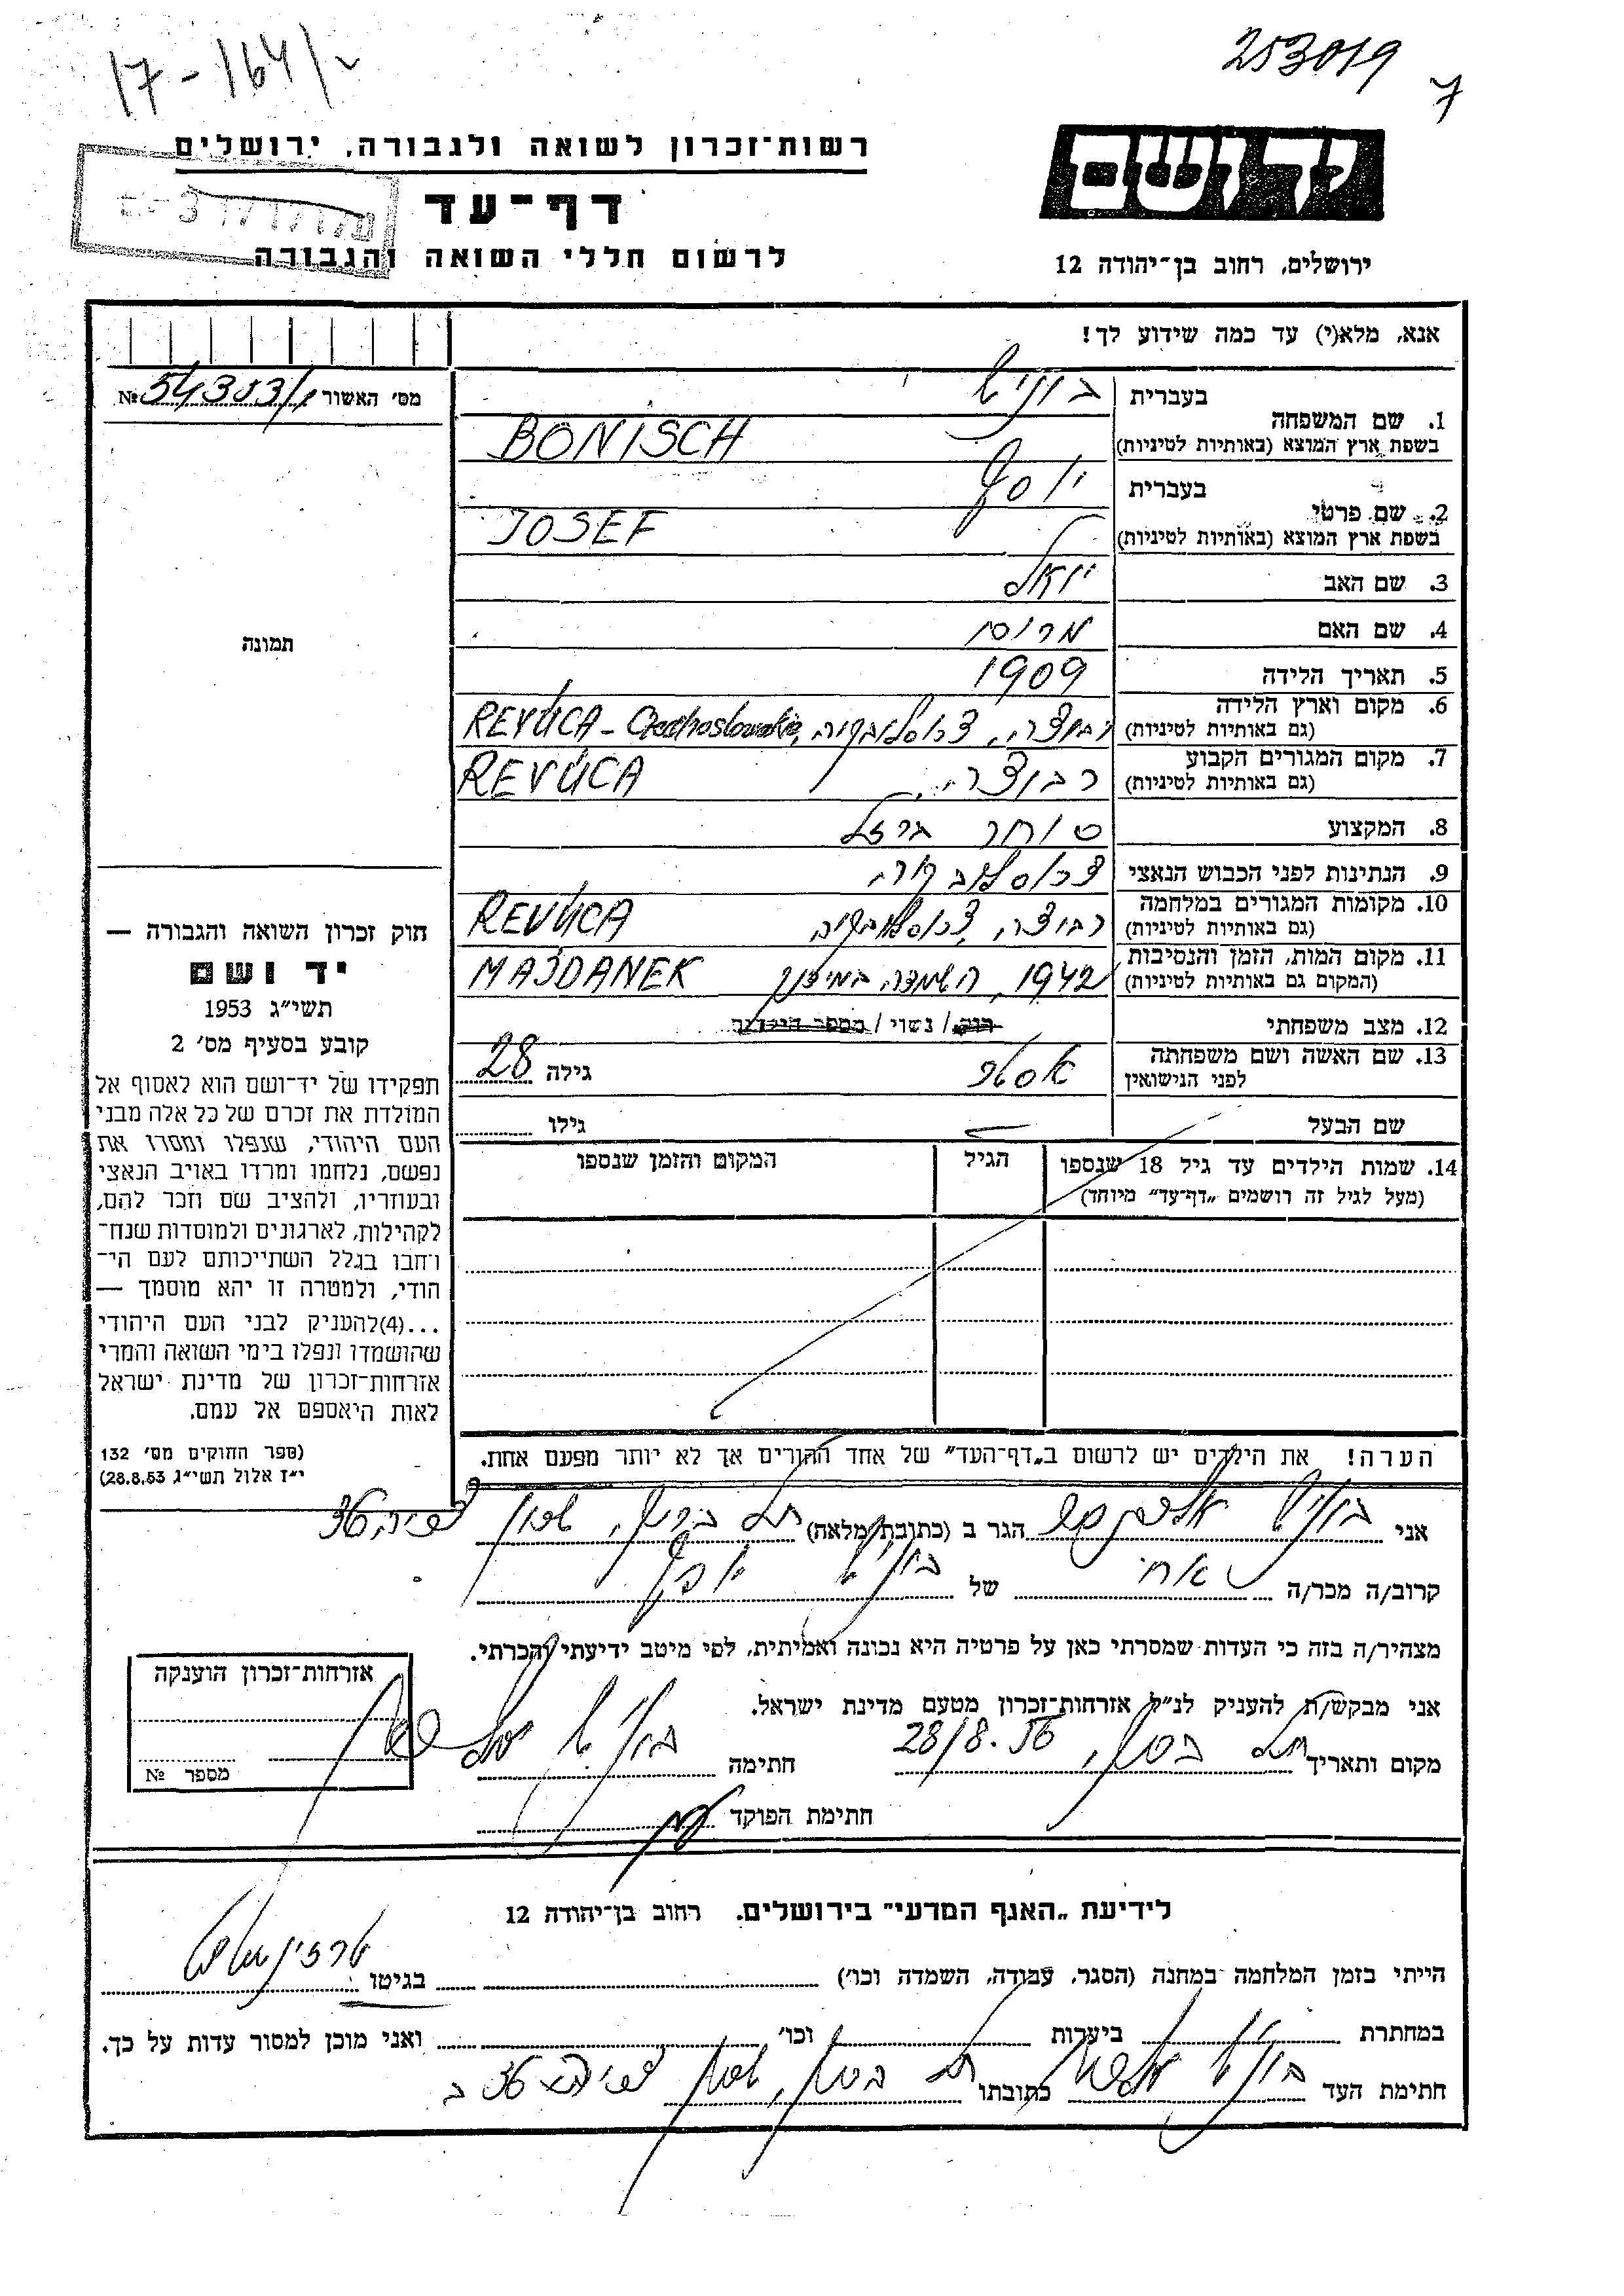 17-164/
253019
7
רשות-זכרון לשואה ולגבורה, ירושלים
דף-עד
לרשום חללי השואה והגבורה
ידושם
ירושלים, רחוב בן-יהודה 12
אנא, מלא(י) עד כמה שידוע לך!
מס׳ האשור № 54353/1
1. שם המשפחה בעברית בוניש
בשפת ארץ המוצא (באותיות לטיניות) BONISCH
2. שם פרטי בעברית יוסף
בשפת ארץ המוצא (באותיות לטיניות) JOSEF
3. שם האב יואל
4. שם האם
5. תאריך הלידה 1909
6. מקום וארץ הלידה
(גם באותיות לטיניות) רבוצה, צכוסלובקיה, REVÚCA - Czechoslowakia
7. מקום המגורים הקבוע
(גם באותיות לטיניות) רבוצה, REVÚCA
8. המקצוע סוחר ברזל
9. הנתינות לפני הכבוש הנאצי צכוסלובקיה
10. מקומות המגורים במלחמה
(גם באותיות לטיניות) רבוצה, צכוסלובקיה, REVÚCA
11. מקום המות, הזמן והנסיבות
(המקום גם באותיות לטיניות) 1942, השמדה במידנק MAJDANEK
12. מצב משפחתי רוק / נשוי / מספר הילדים
13. שם האשה ושם משפחתה
לפני הנישואין אסתר גילה 28
שם הבעל גילו
14. שמות הילדים עד גיל 18 שנספו
(מעל לגיל זה רושמים „דף-עד״ מיוחד)
הגיל
המקום והזמן שנספו
תמונה
חוק זכרון השואה והגבורה —
יד ושם
תשי״ג 1953
קובע בסעיף מס׳ 2
תפקידו של יד-ושם הוא לאסוף אל
המולדת את זכרם של כל אלה מבני
העם היהודי, שנפלו ומסרו את
נפשם, נלחמו ומרדו באויב הנאצי
ובעוזריו, ולהציב שם וזכר להם,
לקהילות, לארגונים ולמוסדות שנח-
רחבו בגלל השתייכותם לעם הי-
הודי, ולמטרה זו יהא מוסמך —
...(4)להעניק לבני העם היהודי
שהושמדו ונפלו בימי השואה והמרי
אזרחות-זכרון של מדינת ישראל
לאות היאספם אל עמם.
(ספר החוקים מס׳ 132
י״ז אלול תשי״ג 28.8.53)
הערה! את הילדים יש לרשום ב„דף-העד״ של אחד ההורים אך לא יותר מפעם אחת.
אני בוניש הגר ב (כתובת מלאה) 36
קרוב/ה מכר/ה אח של בוניש יוסף
מצהיר/ה בזה כי העדות שמסרתי כאן על פרטיה היא נכונה ואמיתית, לפי מיטב ידיעתי והכרתי.
אני מבקש/ת להעניק לנ״ל אזרחות-זכרון מטעם מדינת ישראל.
מקום ותאריך 28/8.56 חתימה בוניש
חתימת הפוקד
אזרחות-זכרון הוענקה
מספר №
לידיעת „האגף המדעי״ בירושלים, רחוב בן-יהודה 12
הייתי בזמן המלחמה במחנה (הסגר, עבודה, השמדה וכו׳) בגיטו טרזינשטט
במחתרת ביערות וכו׳ ואני מוכן למסור עדות על כך.
חתימת העד בוניש כתובתו 36 ב